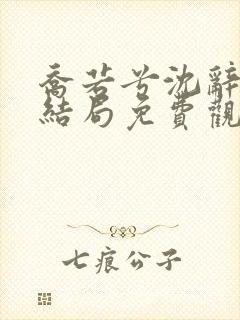 喬若兮沈辭
結局免費觀
七痕公子